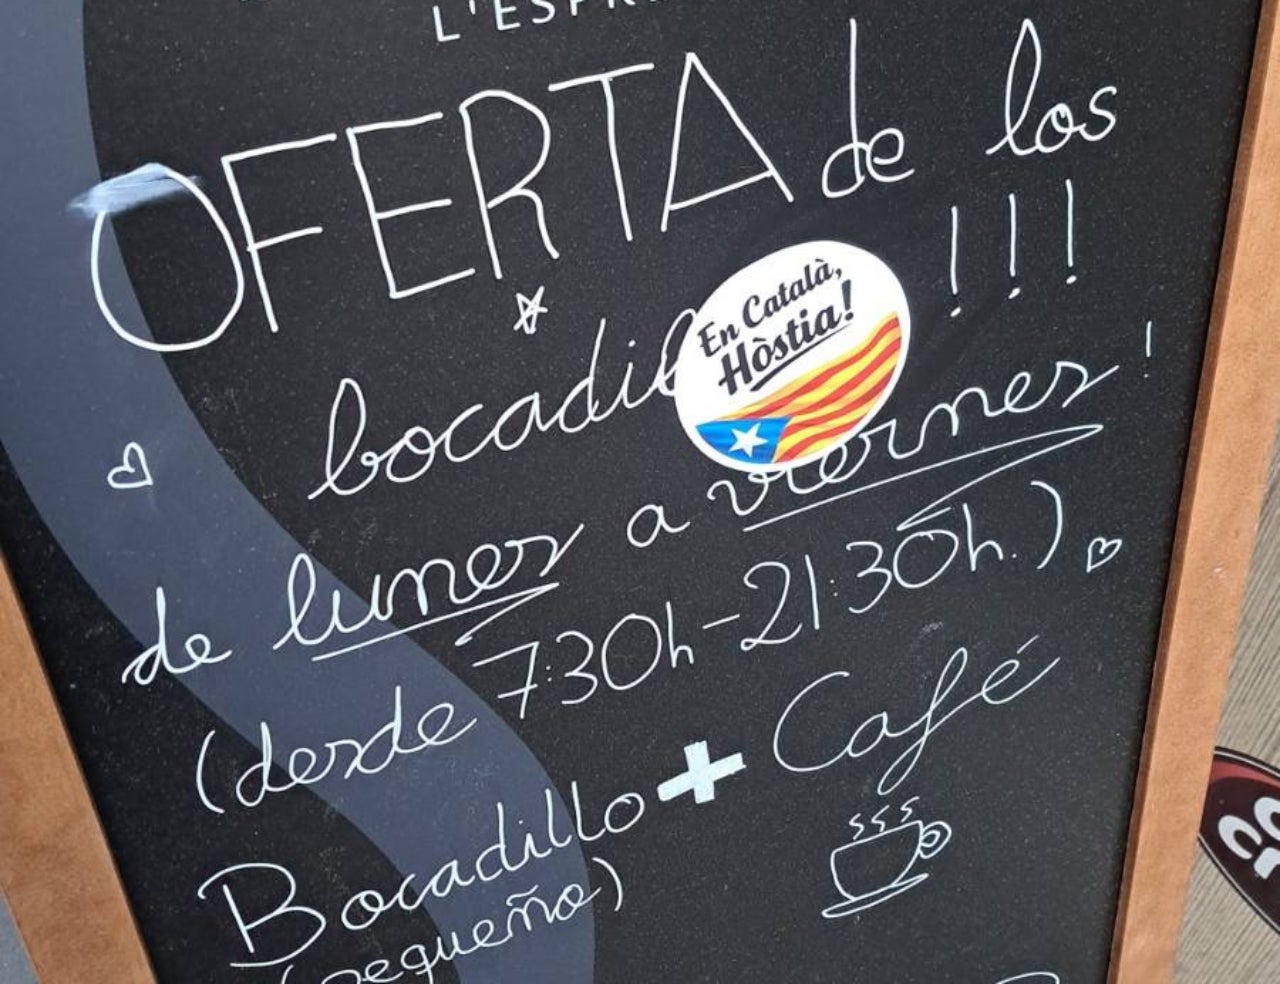 L'ESPR
OFERTA de los
bocadil !!!
En Català,
Hòstia!
de lunes a viernes!
(desde 7:30h-21:30h.)
Bocadillo + Café
(pequeño)